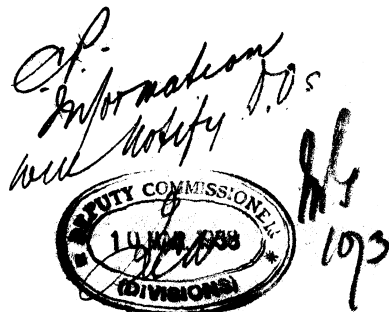 C.P.
Information
will notify D.Os
DEPUTY COMMISSIONER
10 MAR 1938
(DIVISIONS)
10/3